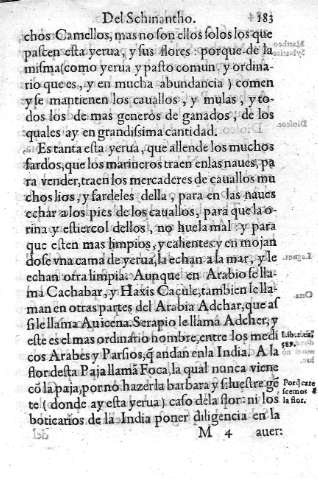 Del Schinantho. 183
chos Camellos, mas no son ellos solos los que
pasten esta yerua, y sus flores: porque de la
misma (como yerua y pasto comun, y ordina
rio que es, y en mucha abundancia) comen
y se mantienen los cauallos, y mulas, y to-
dos los de mas generos de ganados, de los
quales ay en grandissima cantidad.
Es tanta esta yerua, que allende los muchos
fardos, que los marineros traen en las naues, pa
ra vender, traen los mercaderes de cauallos mu
chos lios, y fardeles della, para en las naues
echar a los pies de los cauallos, para que la o-
rina y estiercol dellos, no huela mal: y para
que esten mas limpios, y calientes: y en mojan
dose vna cama de yerua, la echan a la mar, y le
echan otra limpia. Aunque en Arabio se lla-
ma Cachabar, y Haxis Caçule, tambien le lla-
man en otras partes del Arabia Adchar, que as
si le llama Auicena. Serapio le llama Adcher, y
este es el mas ordinario nombre, entre los medi
cos Arabes y Parsios, q̃ andan en la India. A la
flor desta Paja llamã Foca, la qual nunca viene
cõ la paja, por no hazer la barbara y siluestre gẽ
te (donde ay esta yerua) caso dela flor: ni los
boticarios de la India poner diligencia en la
Porq̃ care
scemos d
la flor.
M 4 auer: